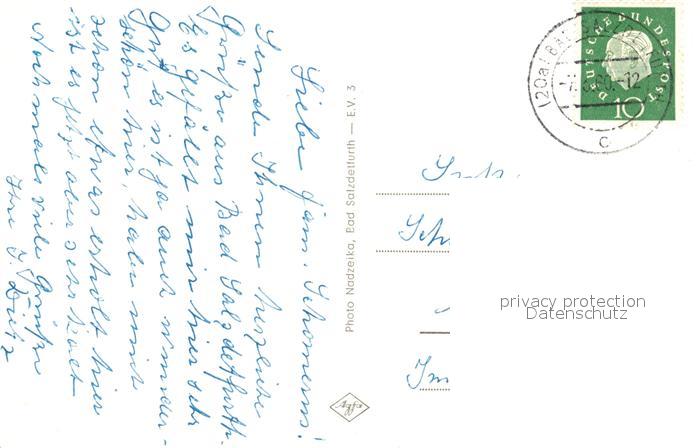 Liebe Fam. Schomerus!
Sende Ihnen herzliche
Grüße aus Bad Salzdetfurth.
Es gefällt mir hier sehr
Gut, es ist ja auch wunder-
schön hier, habe mich
schon etwas erholt hier
ist es jetzt aber sehr kalt
Nochmals viele Grüße
Ihre
Photo Nadzeika, Bad Salzdetfurth — E.V. 3
Agfa
DEUTSCHE BUNDESPOST
10
(20a) BAD SALZDETFURTH
c
privacy protection
Datenschutz